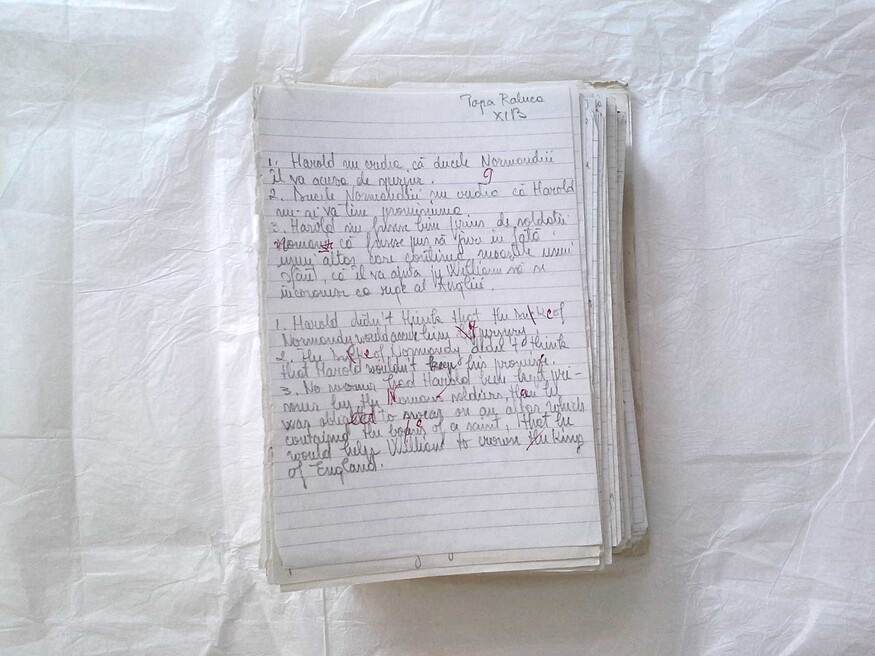 Popa Raluca
XI B
1. Harold nu credea că ducele Normandiei
îl va acuza de sperjur.
9
2. Ducele Normandiei nu credea că Harold
nu-și va ține promisiunea
3. Harold nu fusese bine prins de soldații
normanzi că fusese pus să jure în fața
unui altar care conținea moaștele unui
sfânt, că îl va ajuta pe William să se
încoroneze ca rege al Angliei.
1. Harold didn't think that the of
Normandy would accuse him perjury
2. The of Normandy didn't think
that Harold wouldn't keep his promise.
3. No sooner had Harold been pri-
soner by the Norman soldiers, than he
was to swear on an altar which
contained the of a saint, that he
would help William to crown king
of England.